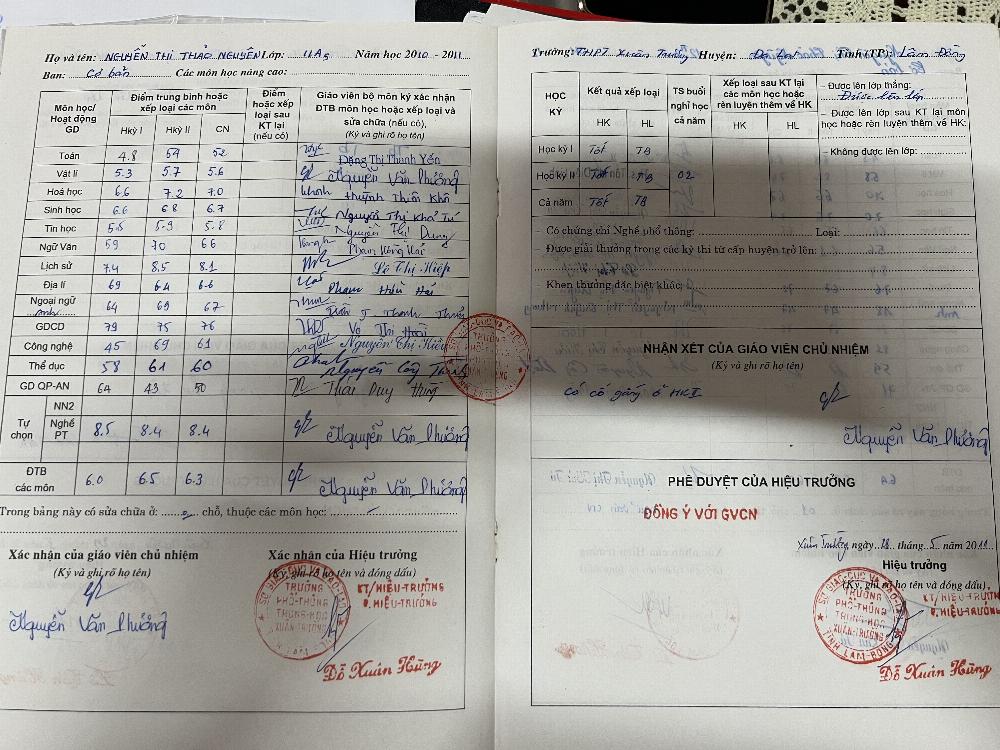 Họ và tên: NGUYỄN THỊ THẢO NGUYÊN Lớp: 11A5 Năm học 2010 - 2011
Ban: Cơ bản Các môn học nâng cao:
Môn học/ Hoạt động GD
Điểm trung bình hoặc xếp loại các môn
Hkỳ I Hkỳ II CN
Điểm hoặc xếp loại sau KT lại (nếu có)
Giáo viên bộ môn ký xác nhận ĐTB môn học hoặc xếp loại và sửa chữa (nếu có),
(Ký và ghi rõ họ tên)
Toán 4.8 54 52 Đặng Thị Thanh Yến
Vật lí 5.3 5.7 5.6 Nguyễn Văn Phưởng
Hoá học 6.6 7.2 7.0 Huỳnh Thiên Khô
Sinh học 6.6 6.8 6.7 Nguyễn Thị Khả Tú
Tin học 5.5 5.9 5.8 Nguyễn Thị Dung
Ngữ Văn 59 70 66 Phạm Hồng Hải
Lịch sử 7.4 8.5 8.1 Lê Thị Hiệp
Địa lí 69 64 6.6 Phạm Hữu Hải
Ngoại ngữ Anh 64 69 67 Thanh
GDCD 79 75 76 Võ Thị Hoài
Công nghệ 45 69 61 Nguyễn Thị Hiếu
Thể dục 58 61 60 Nguyễn Công
GD QP-AN 64 43 50 Thái Duy Hùng
Tự chọn
NN2
Nghề PT 8.5 8.4 8.4 Nguyễn Văn Phưởng
ĐTB các môn 6.0 6.5 6.3 Nguyễn Văn Phưởng
Trong bảng này có sửa chữa ở: chỗ, thuộc các môn học:
Xác nhận của giáo viên chủ nhiệm
(Ký và ghi rõ họ tên)
Nguyễn Văn Phưởng
Xác nhận của Hiệu trưởng
(Ký, ghi rõ họ tên và đóng dấu)
KT/HIỆU-TRƯỞNG
P.HIỆU-TRƯỞNG
SỞ GIÁO-DỤC VÀ ĐÀO-TẠO
TRƯỜNG
PHỔ-THÔNG
TRUNG-HỌC
XUÂN-TRƯỜNG
Đỗ Xuân Hùng
Trường: THPT Xuân Trường Huyện: Tỉnh (TP): Lâm Đồng
HỌC KỲ
Kết quả xếp loại
HK HL
TS buổi nghỉ học cả năm
Xếp loại sau KT lại các môn học hoặc rèn luyện thêm về HK
HK HL
Học kỳ I Tốt TB
Học kỳ II Tốt TB 02
Cả năm Tốt TB
– Được lên lớp thẳng:
Được lên lớp
– Được lên lớp sau KT lại môn học hoặc rèn luyện thêm về HK:
– Không được lên lớp:
– Có chứng chỉ Nghề phổ thông: Loại:
– Được giải thưởng trong các kỳ thi từ cấp huyện trở lên:
– Khen thưởng đặc biệt khác:
NHẬN XÉT CỦA GIÁO VIÊN CHỦ NHIỆM
(Ký và ghi rõ họ tên)
Có cố gắng ở HKII
Nguyễn Văn Phưởng
PHÊ DUYỆT CỦA HIỆU TRƯỞNG
ĐỒNG Ý VỚI GVCN
Xuân Trường ngày 28 tháng 5 năm 2011
Hiệu trưởng
(Ký, ghi rõ họ tên và đóng dấu)
KT/HIỆU-TRƯỞNG
P.HIỆU-TRƯỞNG
SỞ GIÁO-DỤC VÀ ĐÀO-TẠO
TRƯỜNG
PHỔ-THÔNG
TRUNG-HỌC
XUÂN-TRƯỜNG
TỈNH LÂM-ĐỒNG
Đỗ Xuân Hùng